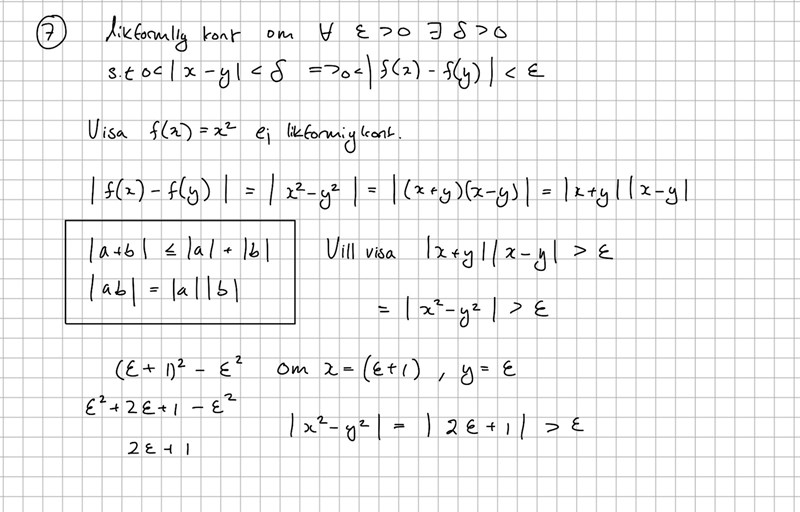 7 likformlig kont om ∀ ε > 0 ∃ δ > 0
s.t 0<|x-y| < δ => 0<|f(x) - f(y)| < ε
Visa f(x) = x² ej likformigkont.
|f(x) - f(y)| = |x²-y²| = |(x+y)(x-y)| = |x+y||x-y|
|a+b| ≤ |a| + |b|
|ab| = |a||b|
Vill visa |x+y||x-y| > ε
= |x²-y²| > ε
(ε+1)² - ε² om x = (ε+1), y = ε
ε²+2ε+1 - ε²
|x²-y²| = |2ε+1| > ε
2ε+1